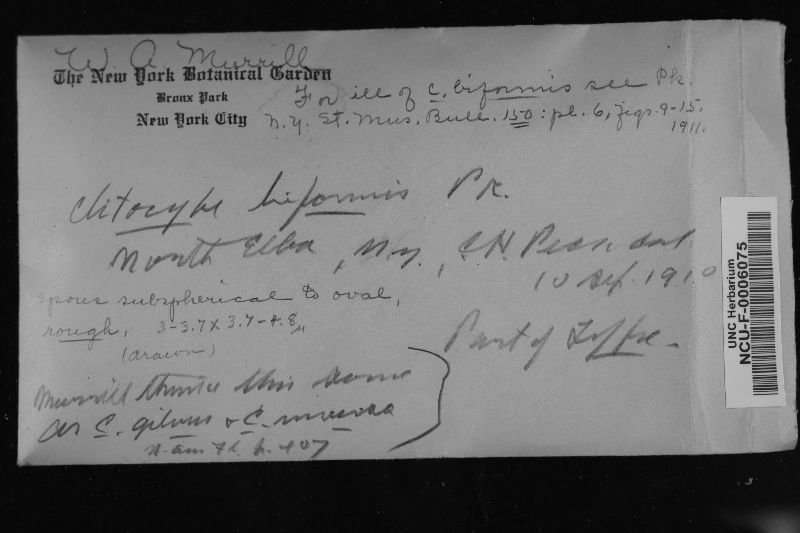 W. A. Murrill
The New York Botanical Garden
Bronx Park
New York City
For ill of C. biformis see Pk.
N.Y. St. Mus. Bull. 150: pl. 6, figs. 9-15.
1911.
Clitocybe biformis Pk.
North Elba, N.Y., C.H. Peck
10 Sep. 1910
spores subspherical to oval,
rough, 3-3.7 x 3.7-4.8 µ
(drawn)
Part of Type.
Murrill thinks this same
as C. gilvus &
N. Am. Fl. p. 407
UNC Herbarium
NCU-F-0006075